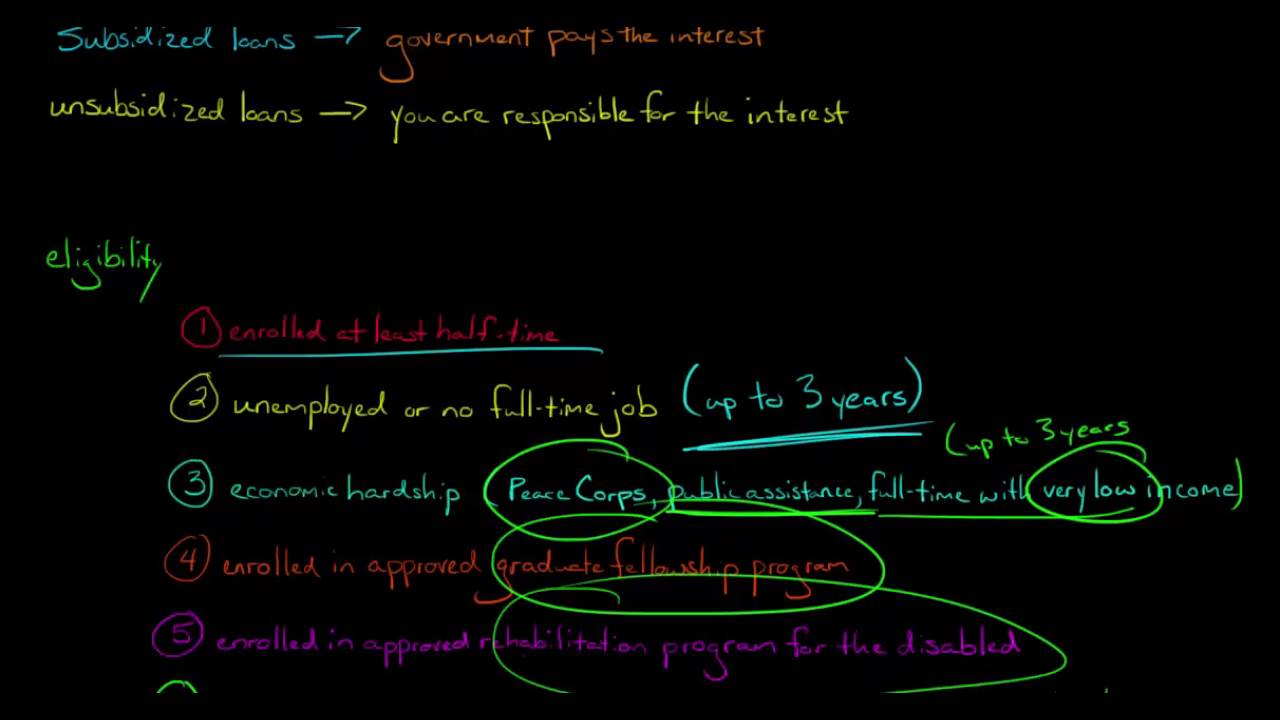 Subsidized loans → government pays the interest
unsubsidized loans → you are responsible for the interest
eligibility
① enrolled at least half-time
② unemployed or no full-time job (up to 3 years)
(up to 3 years
③ economic hardship (Peace Corps, public assistance, full-time with very low income)
④ enrolled in approved graduate fellowship program
⑤ enrolled in approved rehabilitation program for the disabled